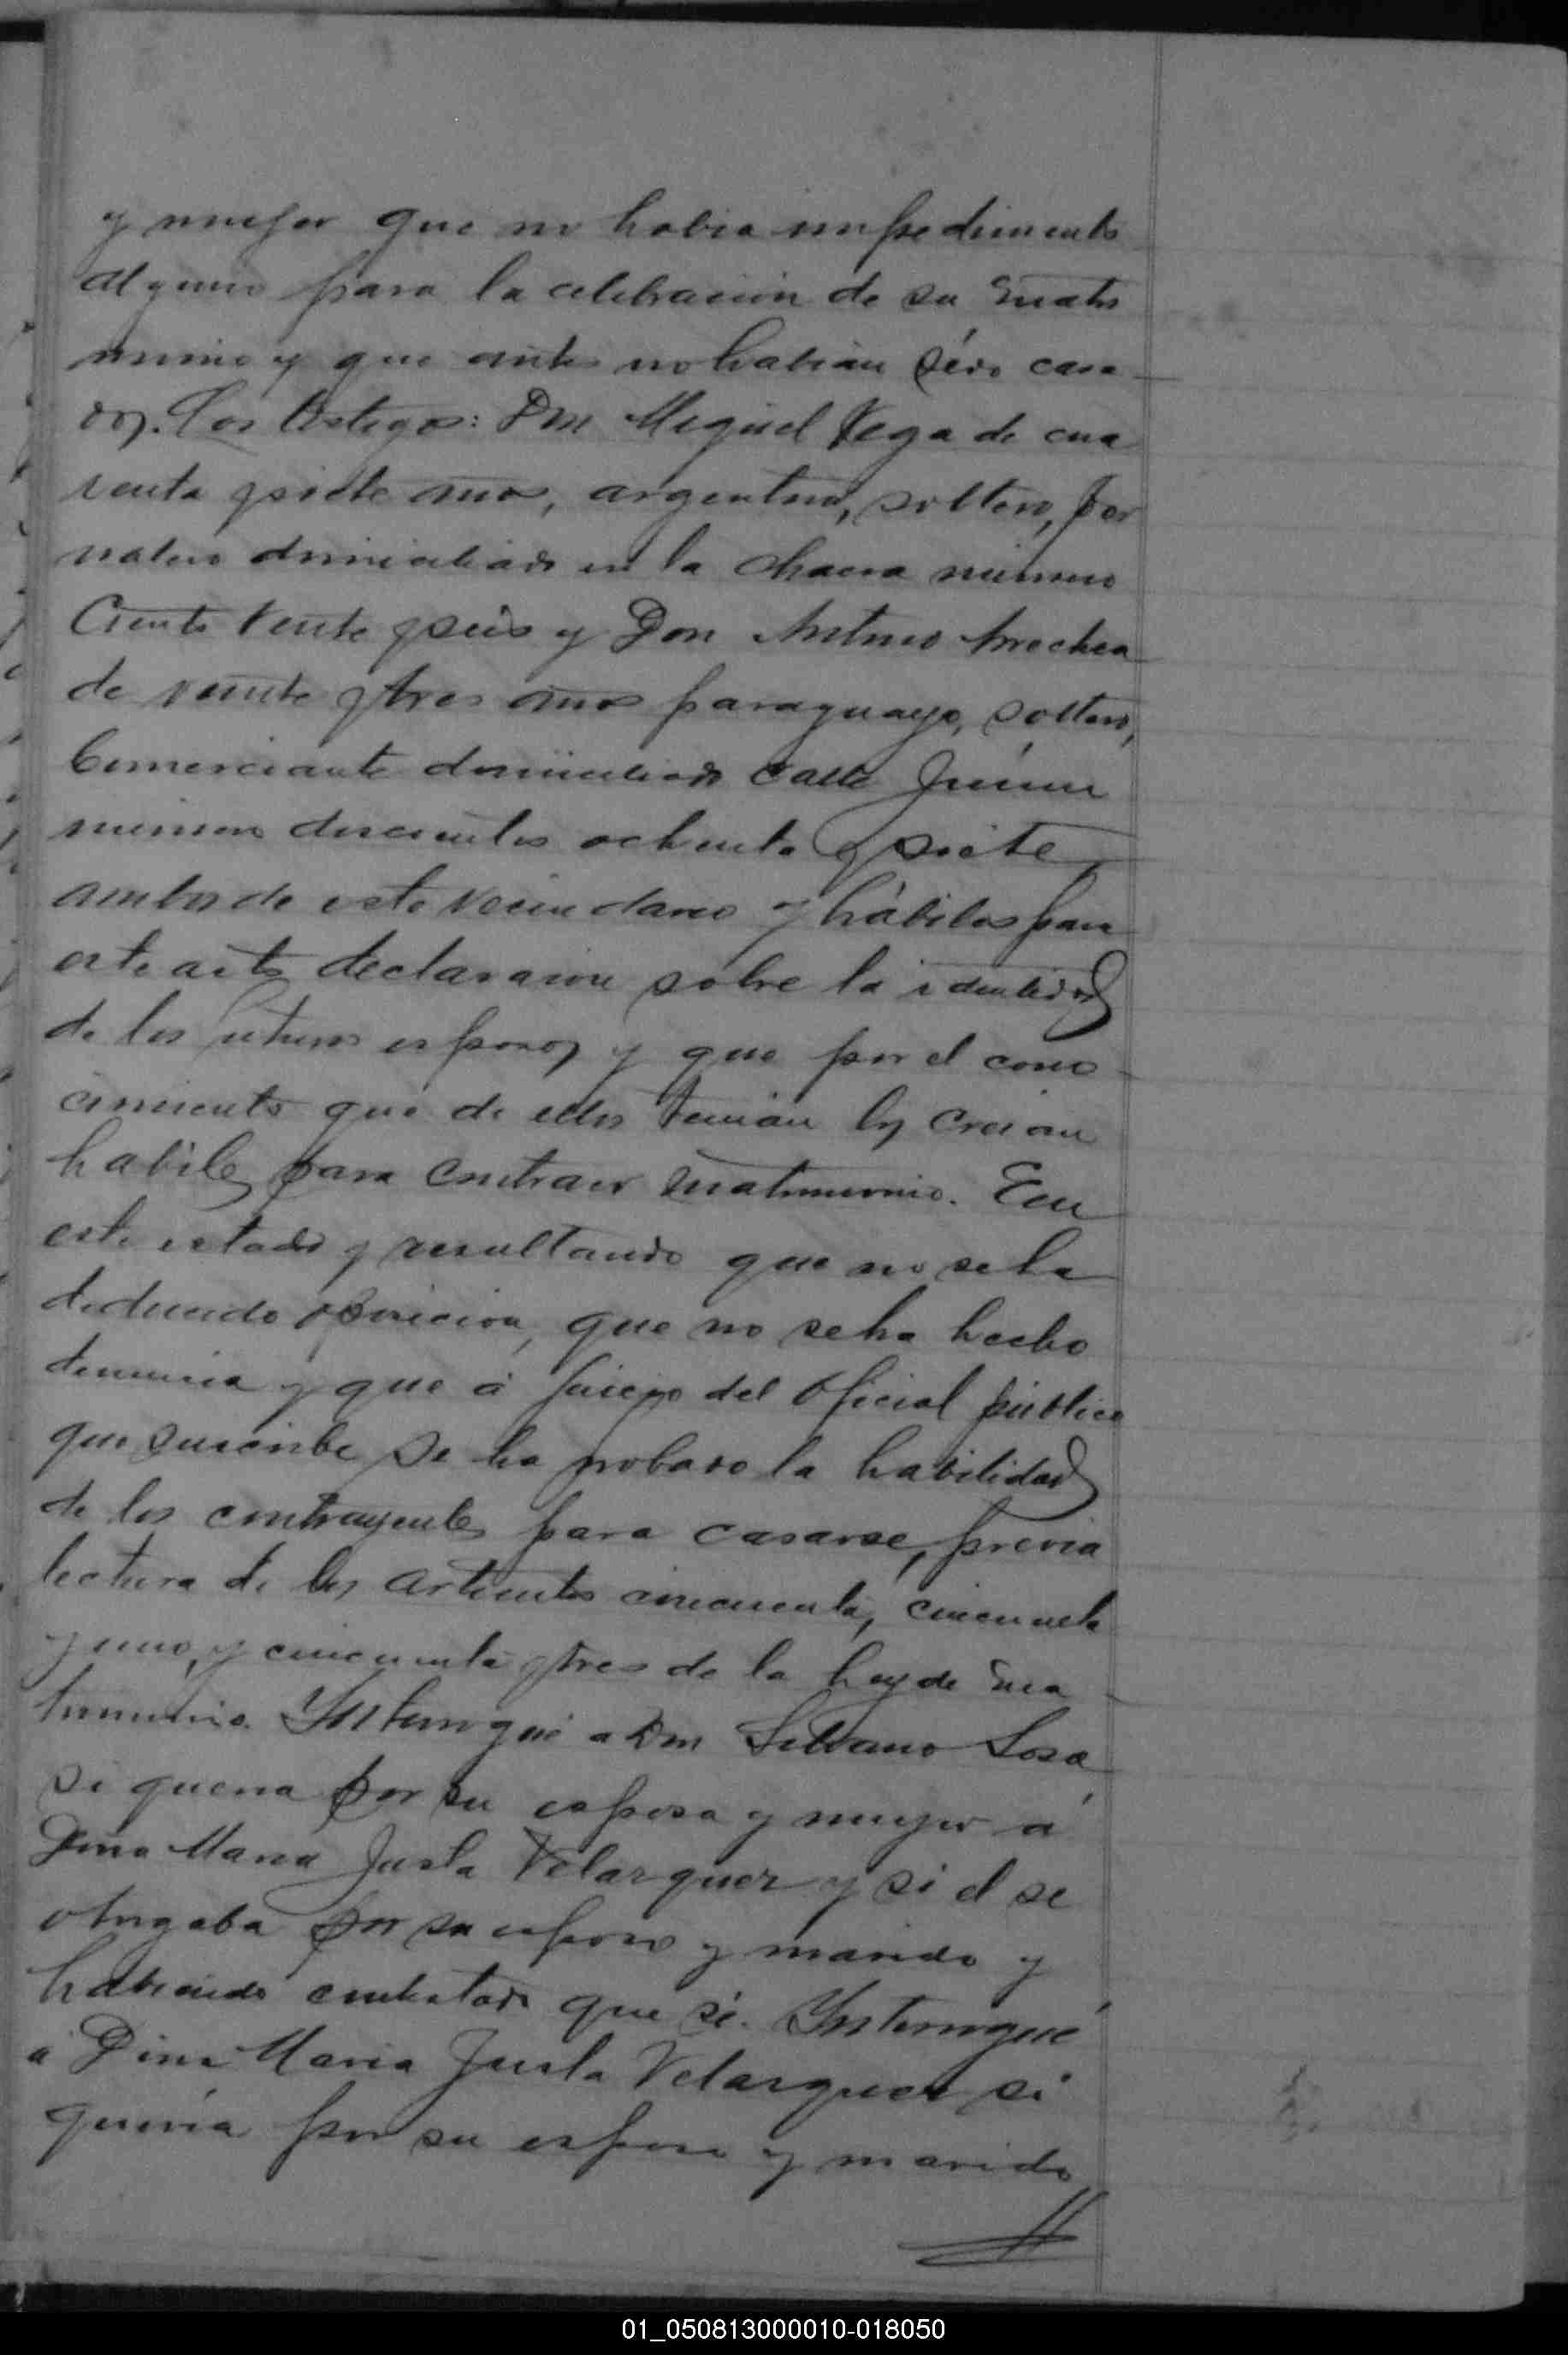 y mujer que no habia impedimento
alguno para la celebracion de su matri
monio y que antes no habian sido casa
dos. Los testigos: Don Miguel Vega de cua
renta y siete años, argentino, soltero, jor
nalero domiciliado en la chacra número
Ciento veinte y seis y Don Antonio Arrechea
de veinte y tres años paraguayo, soltero,
Comerciante domiciliado calle Junin
numero doscientos ochenta y siete,
ambos de este vecindario y hábiles para
este acto declararon sobre la identidad
de los futuros esposos y que por el cono
cimiento que de ellos tenian los creian
habiles para contraer matrimonio. En
este estado y resultando que no se ha
deducido oposicion, que no se ha hecho
denuncia y que á juicio del oficial público
que suscribe se ha probado la habilidad
de los contrayentes para casarse, previa
lectura de los articulos cincuenta, cincuenta
y uno, y cincuenta y tres de la ley de ma
trimonio. Ynterrogué a Don Silvano Sosa
si queria por su esposa y mujer á
Doña Maria Justa Velazquez y si el se
otorgaba por su esposo y marido y
habiendo contestado que sí. Ynterrogué
á Doña Maria Justa Velazquez si
queria por su esposo y marido
01_050813000010-018050